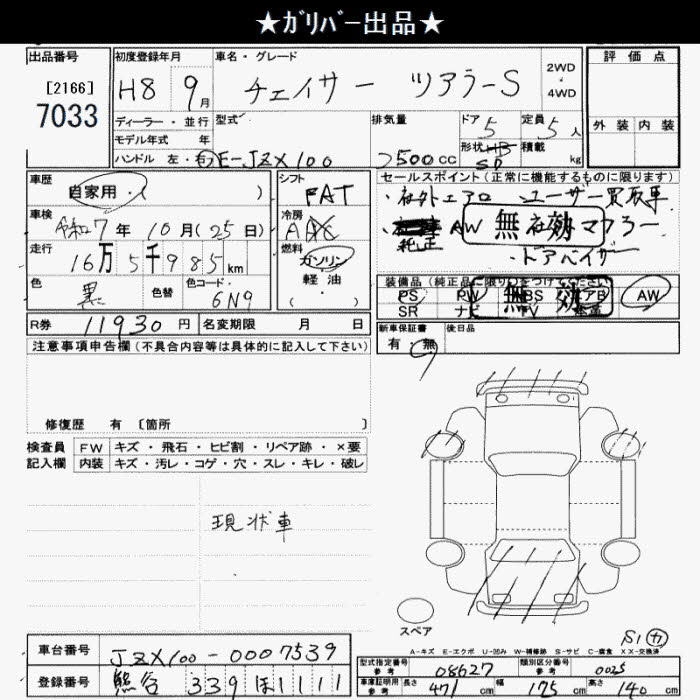 ★ガリバー出品★
出品番号
[2166]
7033
初度登録年月
H8 9月
車名・グレード
チェイサー ツアラーS
2WD
・
4WD
評価点
外装 内装
ディーラー・並行
モデル年式 年
ハンドル 左・右
型式
E-JZX100
排気量
2500cc
ドア 5
定員 5人
形状 SD
積載 kg
車歴
自家用・( )
シフト
FAT
セールスポイント(正常に機能するものに限ります)
・社外エアロ ・ユーザー買取車
・純正AW 無効 社外マフラー
・ドアバイザー
車検
令和7年 10月(25日)
冷房
走行
16万5千985km
燃料
ガソリン
軽油
( )
色
黒
色替
色コード
6N9
装備品(純正品に限り)をつけてください
PS PW ABS エアB AW
SR ナビ TV 本革
無効
R券 11930円
名変期限 月 日
新車保証書
有・無
後日品
注意事項申告欄(不具合内容等は具体的に記入して下さい)
修復歴 有 〔箇所 〕
検査員
記入欄
FW キズ・飛石・ヒビ割・リペア跡・×要
内装 キズ・汚レ・コゲ・穴・スレ・キレ・破レ
現状車
スペア
S1 カ
A-キズ E-エクボ U-凹み W-補修跡 S-サビ C-腐食 XX-交換済
車台番号 JZX100-0007539
登録番号 熊谷 339 ほ 1111
型式指定番号
参考
08627
類別区分番号
参考
0025
車庫証明用
参考
長さ 471cm 幅 175cm 高さ 140cm